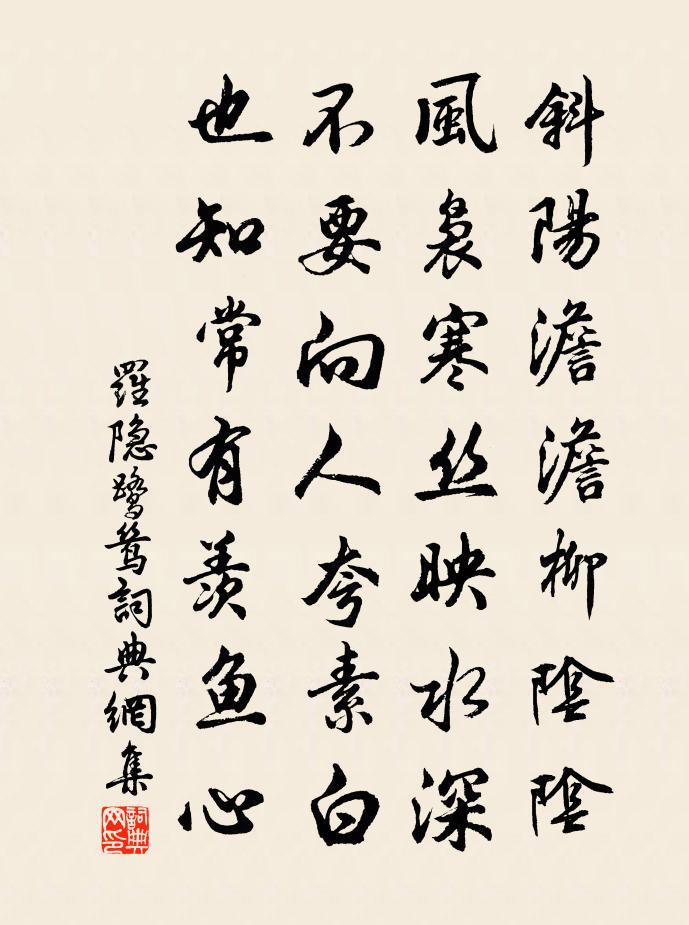 斜陽澹澹柳陰陰
風裊寒丝映水深
不要向人夸素白
也知常有羨鱼心
羅隐鷺鷥詞典網集
詞典网印